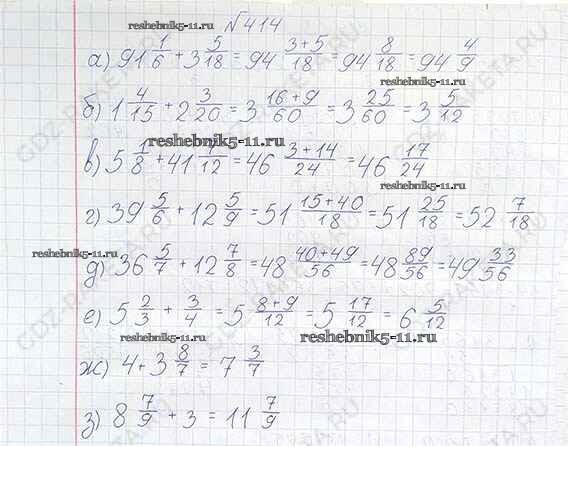 №414
reshebnik5-11.ru
а) 91 1/6 + 3 5/18 = 94 3+5/18 = 94 8/18 = 94 4/9
reshebnik5-11.ru
б) 1 4/15 + 2 3/20 = 3 16+9/60 = 3 25/60 = 3 5/12
reshebnik5-11.ru
в) 5 1/8 + 41 7/12 = 46 3+14/24 = 46 17/24
reshebnik5-11.ru
г) 39 5/6 + 12 5/9 = 51 15+40/18 = 51 25/18 = 52 7/18
reshebnik5-11.ru
д) 36 5/7 + 12 7/8 = 48 40+49/56 = 48 89/56 = 49 33/56
е) 5 2/3 + 3/4 = 5 8+9/12 = 5 17/12 = 6 5/12
reshebnik5-11.ru
ж) 4 + 3 8/7 = 7 3/7
з) 8 7/9 + 3 = 11 7/9